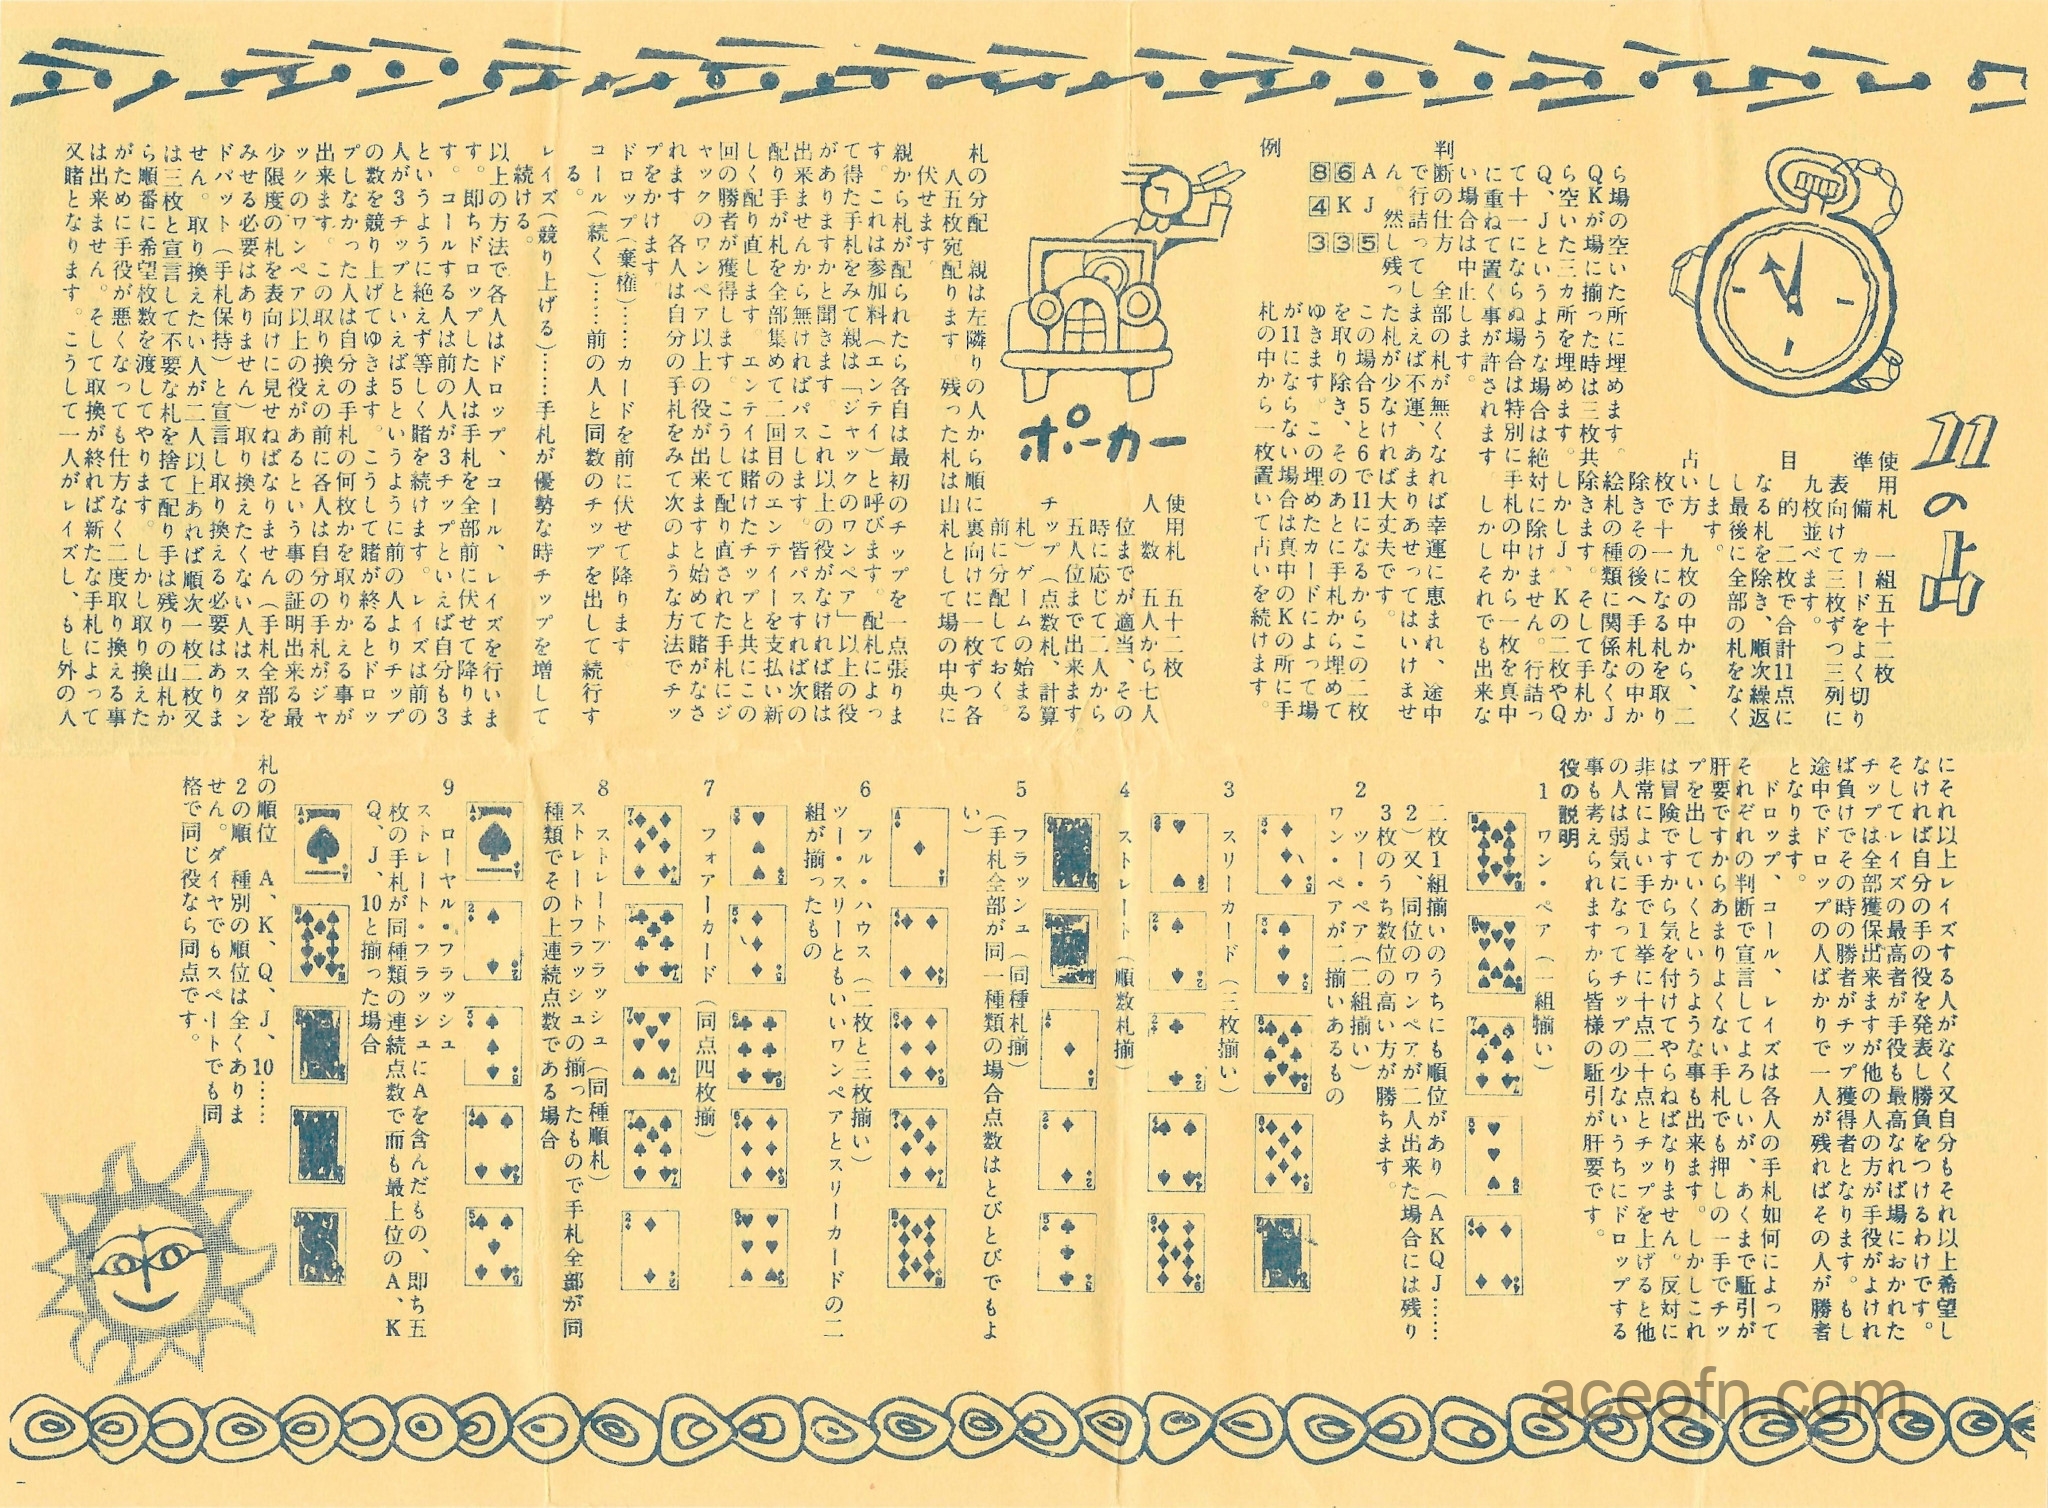 11の占
使用札　一組五十二枚
準　備　カードをよく切り
表向けて三枚ずつ三列に
九枚並べます。
目　的　二枚で合計11点に
なる札を除き、順次繰返
し最後に全部の札をなく
します。
占い方　九枚の中から、二
枚で十一になる札を取り
除きその後へ手札の中か
ら場の空いた所に埋めます。　絵札の種類に関係なくJ
QKが場に揃った時は三枚共除きます。そして手札か
ら空いた三カ所を埋めます。　しかしJ、Kの二枚やQ
Q、Jというような場合は絶対に除けません。行詰っ
て十一にならぬ場合は特別に手札の中から一枚を真中
に重ねて置く事が許されます　しかしそれでも出来な
い場合は中止します。
判断の仕方　全部の札が無くなれば幸運に恵まれ、途中
で行詰ってしまえば不運、あまりあせってはいけませ
ん。然し残った札が少なければ大丈夫です。
例
AJ5
6K3
843
この場合5と6で11になるからこの二枚
を取り除き、そのあとに手札から埋めて
ゆきます。この埋めたカードによって場
が11にならない場合は真中のKの所に手
札の中から一枚置いて占いを続けます。
ポーカー
使用札　五十二枚
人　数　五人から七人
位までが適当、その
時に応じて二人から
五人位まで出来ます
チップ（点数札、計算
札）ゲームの始まる
前に分配しておく。
札の分配　親は左隣りの人から順に裏向けに一枚ずつ各
人五枚宛配ります。残った札は山札として場の中央に
伏せます。
親から札が配られたら各自は最初のチップを一点張りま
す。これは参加料（エンティ）と呼びます。配札によっ
て得た手札をみて親は「ジャックのワンペア」以上の役
がありますかと聞きます。これ以上の役がなければ賭は
出来ませんから無ければパスします。皆パスすれば次の
配り手が札を全部集めて二回目のエンティーを支払い新
しく配り直します。エンティは賭けたチップと共にこの
回の勝者が獲得します。こうして配り直された手札にジ
ャックのワンペア以上の役が出来ますと始めて賭がなさ
れます　各人は自分の手札をみて次のような方法でチッ
プをかけます。
ドロップ（棄権）……カードを前に伏せて降ります。
コール（続く）……前の人と同数のチップを出して続行す
る。
レイズ（競り上げる）……手札が優勢な時チップを増して
続ける。
以上の方法で各人はドロップ、コール、レイズを行いま
す。即ちドロップした人は手札を全部前に伏せて降りま
す。コールする人は前の人が3チップといえば自分も3
というように絶えず等しく賭を続けます。レイズは前の
人が3チップといえば5というように前の人よりチップ
の数を競り上げてゆきます。こうして賭が終るとドロッ
プしなかった人は自分の手札の何枚かを取りかえる事が
出来ます。この取り換えの前に各人は自分の手札がジャ
ックのワンペア以上の役があるという事の証明出来る最
少限度の札を表向けに見せねばなりません（手札全部を
みせる必要はありません）取り換えたくない人はスタン
ドパット（手札保持）と宣言し取り換える必要はありま
せん。取り換えたい人が二人以上あれば順次一枚二枚又
は三枚と宣言して不要な札を捨て配り手は残りの山札か
ら順番に希望枚数を渡してやります。しかし取り換えた
がために手役が悪くなっても仕方なく二度取り換える事
は出来ません。そして取換が終れば新たな手札によって
又賭となります。こうして一人がレイズし、もし外の人
にそれ以上レイズする人がなく又自分もそれ以上希望し
なければ自分の手の役を発表し勝負をつけるわけです。
そしてレイズの最高者が手役も最高なれば場におかれた
チップは全部獲得出来ますが他の人の方が手役がよけれ
ば負けでその時の勝者がチップ獲得者となります。もし
途中でドロップの人ばかりで一人が残ればその人が勝者
となります。
ドロップ、コール、レイズは各人の手札如何によって
それぞれの判断で宣言してよろしいが、あくまで駈引が
肝要ですからあまりよくない手札でも押しの一手でチッ
プを出していくというような事も出来ます。しかしこれ
は冒険ですから気を付けてやらねばなりません。反対に
非常によい手で1挙に十点二十点とチップを上げると他
の人は弱気になってチップの少ないうちにドロップする
事も考えられますから皆様の駈引が肝要です。
役の説明
1　ワン・ペア（一組揃い）
二枚1組揃いのうちにも順位があり（AKQJ……
2）又、同位のワンペアが二人出来た場合には残り
3枚のうち数位の高い方が勝ちます。
2　ツー・ペア（二組揃い）
ワン・ペアが二揃いあるもの
3　スリーカード（三枚揃い）
4　ストレート（順数札揃）
5　フラッシュ（同種札揃）
（手札全部が同一種類の場合点数はとびとびでもよ
い）
6　フル・ハウス（二枚と三枚揃い）
ツー・スリーともいいワンペアとスリーカードの二
組が揃ったもの
7　フォアーカード（同点四枚揃）
8　ストレートフラッシュ（同種順札）
ストレートフラッシュの揃ったもので手札全部が同
種類でその上連続点数である場合
9　ローヤル・フラッシュ
ストレート・フラッシュにAを含んだもの、即ち五
枚の手札が同種類の連続点数で而も最上位のA、K
Q、J、10と揃った場合
札の順位　A、K、Q、J、10……
2の順　種別の順位は全くありま
せん。ダイヤでもスペートでも同
格で同じ役なら同点です。
aceofn.com